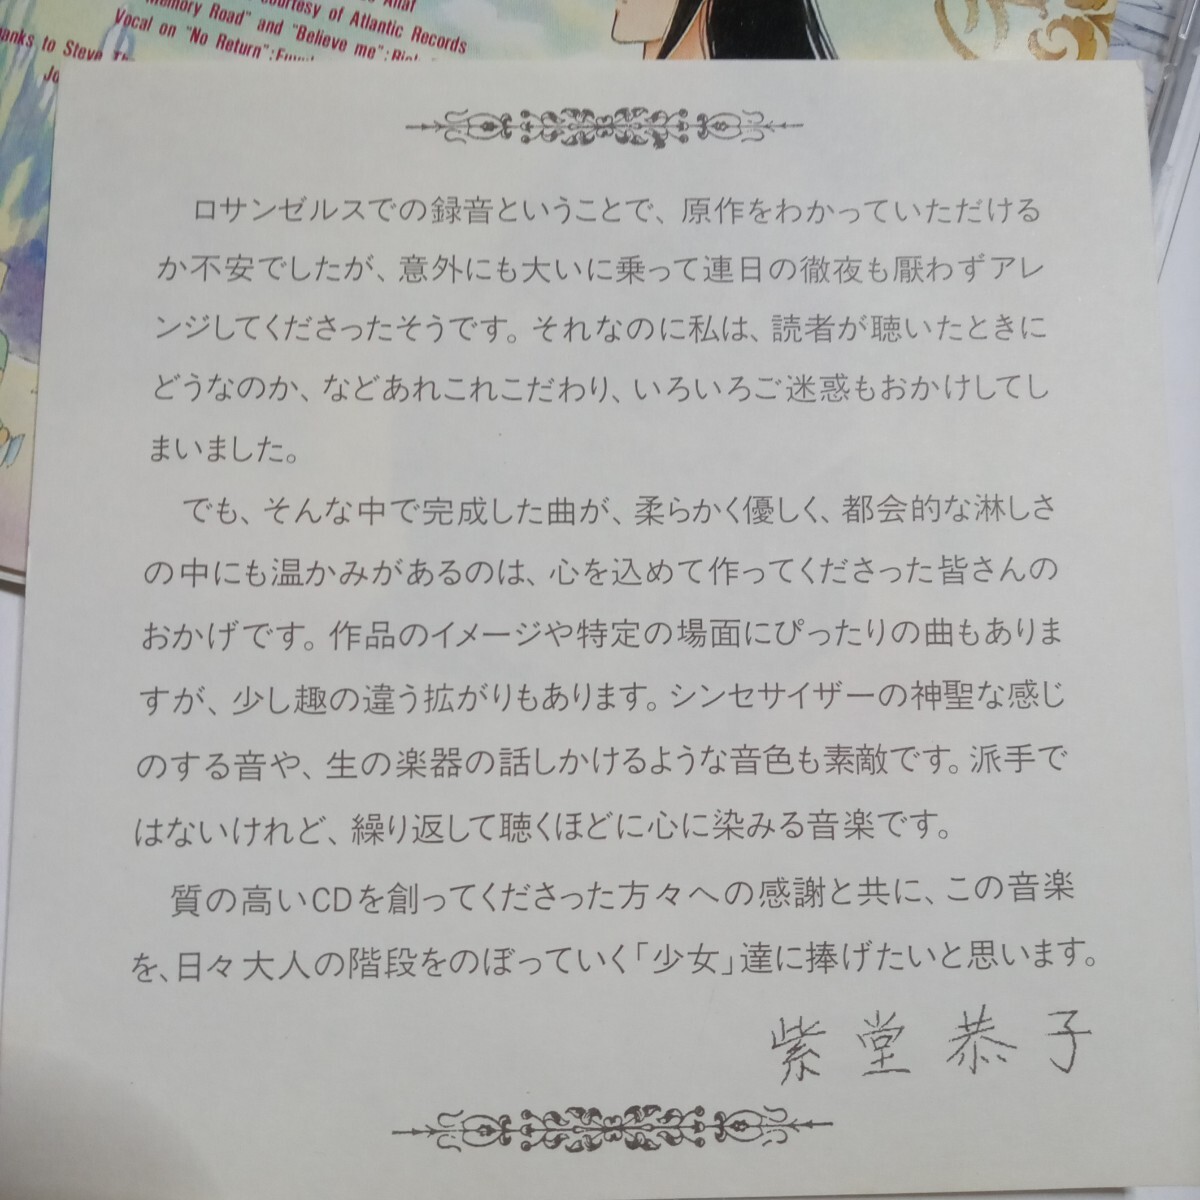 "Memory Road" and "Believe me"
courtesy of Atlantic Records
Vocal on "No Return":
to Steve
ロサンゼルスでの録音ということで、原作をわかっていただける
か不安でしたが、意外にも大いに乗って連日の徹夜も厭わずアレ
ンジしてくださったそうです。それなのに私は、読者が聴いたときに
どうなのか、などあれこれこだわり、いろいろご迷惑もおかけしてし
まいました。
でも、そんな中で完成した曲が、柔らかく優しく、都会的な淋しさ
の中にも温かみがあるのは、心を込めて作ってくださった皆さんの
おかげです。作品のイメージや特定の場面にぴったりの曲もありま
すが、少し趣の違う拡がりもあります。シンセサイザーの神聖な感じ
のする音や、生の楽器の話しかけるような音色も素敵です。派手で
はないけれど、繰り返して聴くほどに心に染みる音楽です。
質の高いCDを創ってくださった方々への感謝と共に、この音楽
を、日々大人の階段をのぼっていく「少女」達に捧げたいと思います。
紫堂恭子